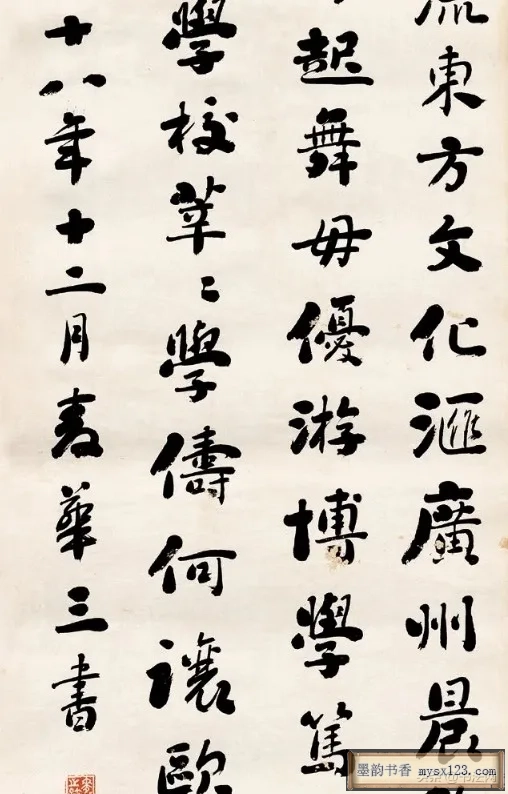 東方文化滙廣州晨
起舞毋優游博學篤
學校莘〻學儔何讓歐
十八年十二月麦華三書
墨韵书香 mysx123.com